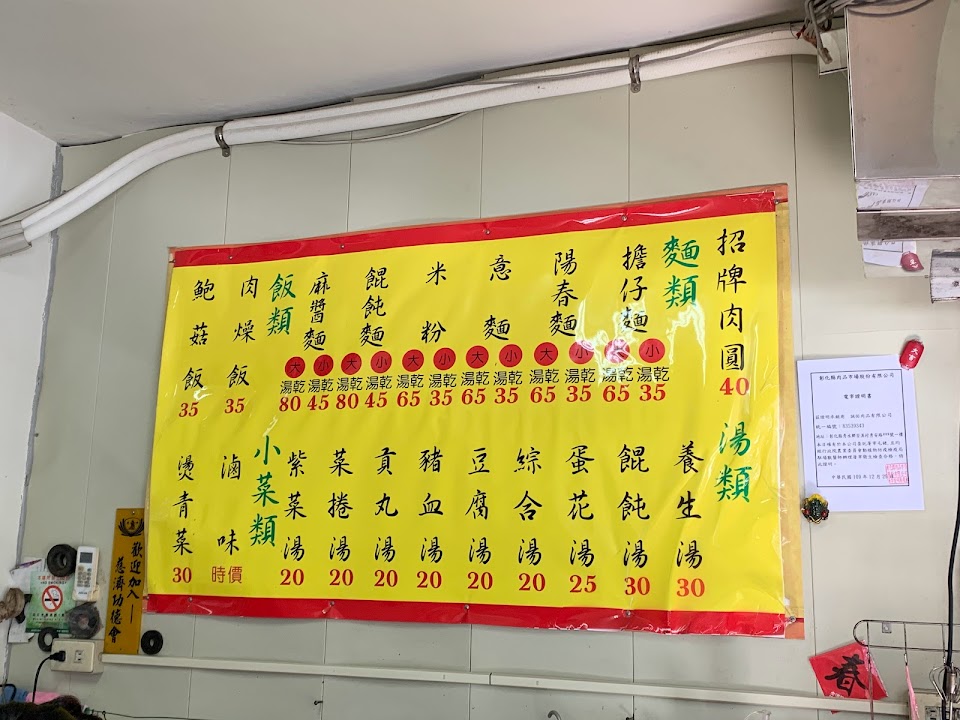 招牌肉圓 40
麵類
擔仔麵
大 小
湯乾 湯乾
65 35
陽春麵
大 小
湯乾 湯乾
65 35
意麵
大 小
湯乾 湯乾
65 35
米粉
大 小
湯乾 湯乾
65 35
餛飩麵
大 小
湯乾 湯乾
80 45
麻醬麵
大 小
湯乾 湯乾
80 45
飯類
肉燥飯 35
鮑菇飯 35
湯類
養生湯 30
餛飩湯 30
蛋花湯 25
綜合湯 20
豆腐湯 20
豬血湯 20
貢丸湯 20
菜捲湯 20
紫菜湯 20
小菜類
滷味 時價
燙青菜 30
彰化縣肉品市場股份有限公司
電宰證明書
統一編號：
歡迎加入
慈濟功德會
春
大吉